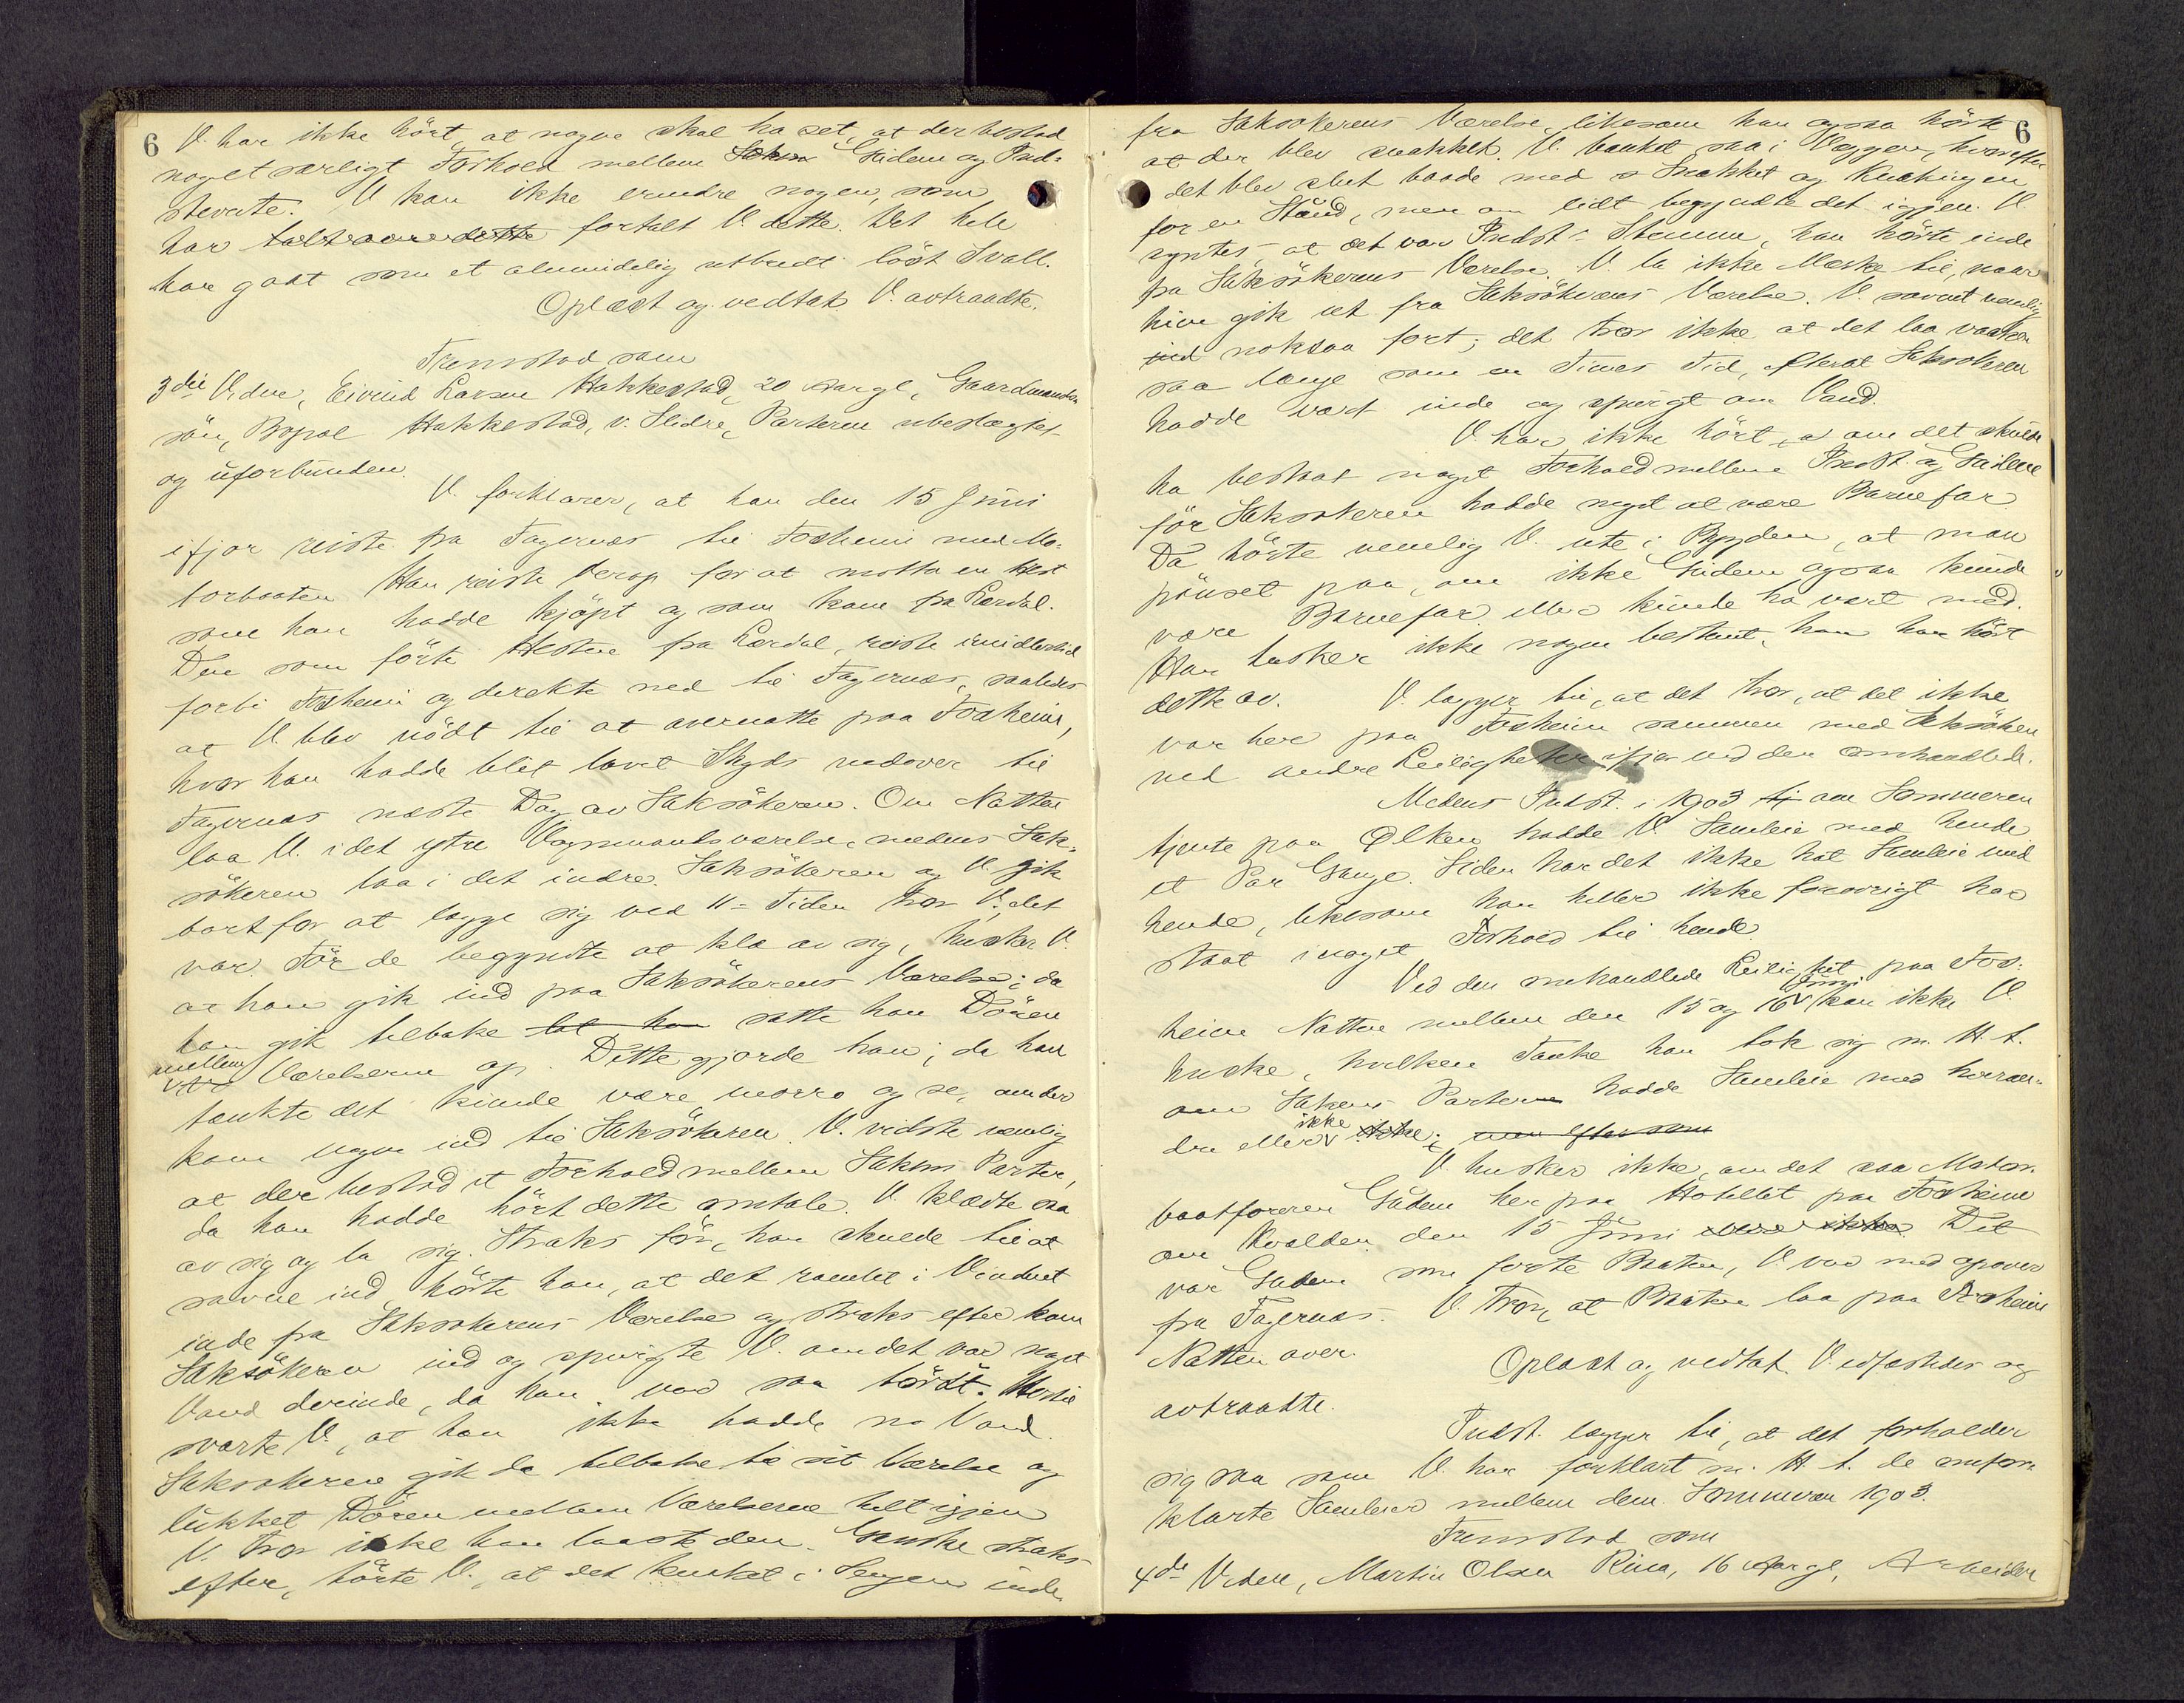 6
V. har ikke hört at nogen skal ha set, at der bestod
noget særligt Forhold mellem Saken Guden og Ind-
stevnte. V kan ikke erindre nogen, som
har talt om dette fortalt V. dette. Det hele
har gaat som et almindelig utbredt löst Snakk.
Oplæst og vedtat. V. avtraadte.
Fremstod som
3die Vidne, Eivind Larsen Hakkestad, 20 Aar gl, Gaardmands
sön, Bopæl Hakkestad, v. Slidre, Parterne ubeslægtet
og uforbunden.
V. forklarer, at han den 15 Juni
ifjor reiste fra Fagernæs til Fosheim med Mo-
torbaaten Han reiste derop for at motta en Hest
som han hadde kjöpt og som kom fra Lærdal.
Den som förte Hesten fra Lærdal, reiste imidlertid
forbi Fosheim og direkte ned til Fagernæs, saaledes
at V. blev nödt til at overnatte paa Fosheim,
hvor han hadde blit lovet Skyds nedover til
Fagernæs næste Dag av Saksökeren. Om Natten
laa V. i det ytre Vognmandsværelse, medens Sak-
sökeren laa i det indre. Saksökeren og V. gik
bort for at lægge sig ved 11- Tiden tror V. det
var. För de begyndte at klæ av sig, husker V.
at han gik ind paa Saksökerens Værelse; da
han gik tilbake lot han satte han Dören
mellem Værelserne op. Dette gjorde han; da han
tænkte det kunde være morro og se, om der
kom nogen ind til Saksökeren. V. vidste nemlig
at der bestod et Forhold mellem Sakens Parter,
da han hadde hört dette omtale. V. klædte saa
av sig og la sig. Straks för, han skulde til at
sovne ind hörte han, at det ramlet i Vinduet
inde fra Saksökerens Værelse og straks efter kom
Saksökeren ind og spurgte V. om det var noget
Vand derinde, da han var saa törst. Hertil
svarte V., at han ikke hadde no Vand.
Saksökeren gik da tilbake til sit Værelse og
lukket Dören mellem Værelserne helt igjen
V. tror ikke han laaste den. Ganske straks
efter, hörte V., at det knaket i Sengen inde
6
fra Saksökerens Værelse, likesom han ogsaa hörte
at der blev snakket. V. banket saa i Væggen, hvorefter
det blev slut baade med Snakket og Knakingen
for en Stund, men om lidt begyndte det igjen. V.
syntes, at det var Indst.s Stemme, han hörte inde
fra Saksökerens Værelse. V. la ikke Mærke til, naar
hun gik ut fra Saksökerens Værelse. V. sovnet nemlig
ind noksaa fort; det tror ikke at det laa vaaken
saa længe som en Times Tid, efterat Saksökeren
hadde vært inde og spurgt om Vand.
V. har ikke hört, om det skulde
ha bestaat noget Forhold mellem Indst. og Guden
för Saksökeren hadde negtet at være Barnefar
Da hörte nemlig V. ute i Bygden, at man
pönset paa, om ikke Guden ogsaa kunde
være Barnefar eller kunde ha vært med.
Han husker ikke nogen bestemt, han har hört
dette av.
V. lægger til, at det tror, at det ikke
var her paa Fosheim sammen med Saksöken
ved andre Leiligheter ifjor end den omhandlede.
Medens Indst. i 1903 tj om Sommeren
tjente paa Ölken hadde V. Samleie med hende
et Par Gange. Siden har det ikke hat Samleie med
hende, likesom han heller ikke forövrigt har
staat i noget Forhold til hende
Ved den omhandlede Leilighet paa Fos-
heim Natten mellem den 15 og 16 Juni kan ikke V.
huske, hvilken Tanke han tok sig m. H. t.
om Sakens Parterne hadde Samleie med hveran-
dre eller ikke ikke; men efter som
V. husker ikke, om det saa Motor-
baatföreren Guden her paa Hotellet paa Fosheim
om Kvælden den 15 Juni eller ikke. Det
var Guden som förte Baaten, V. var med opover
fra Fagernæs. V. tror, at Baaten laa paa Fosheim
Natten over.
Oplæst og vedtat. V. edfæstedes og
avtraadte.
Indst. lægger til, at det forholder
sig saa som V. har forklart m. H. t. de omfor-
klarte Samleier mellem dem Sommeren 1903.
Fremstod som
4de Vidne, Martin Olsen Rina, 16 Aar gl, Arbeider